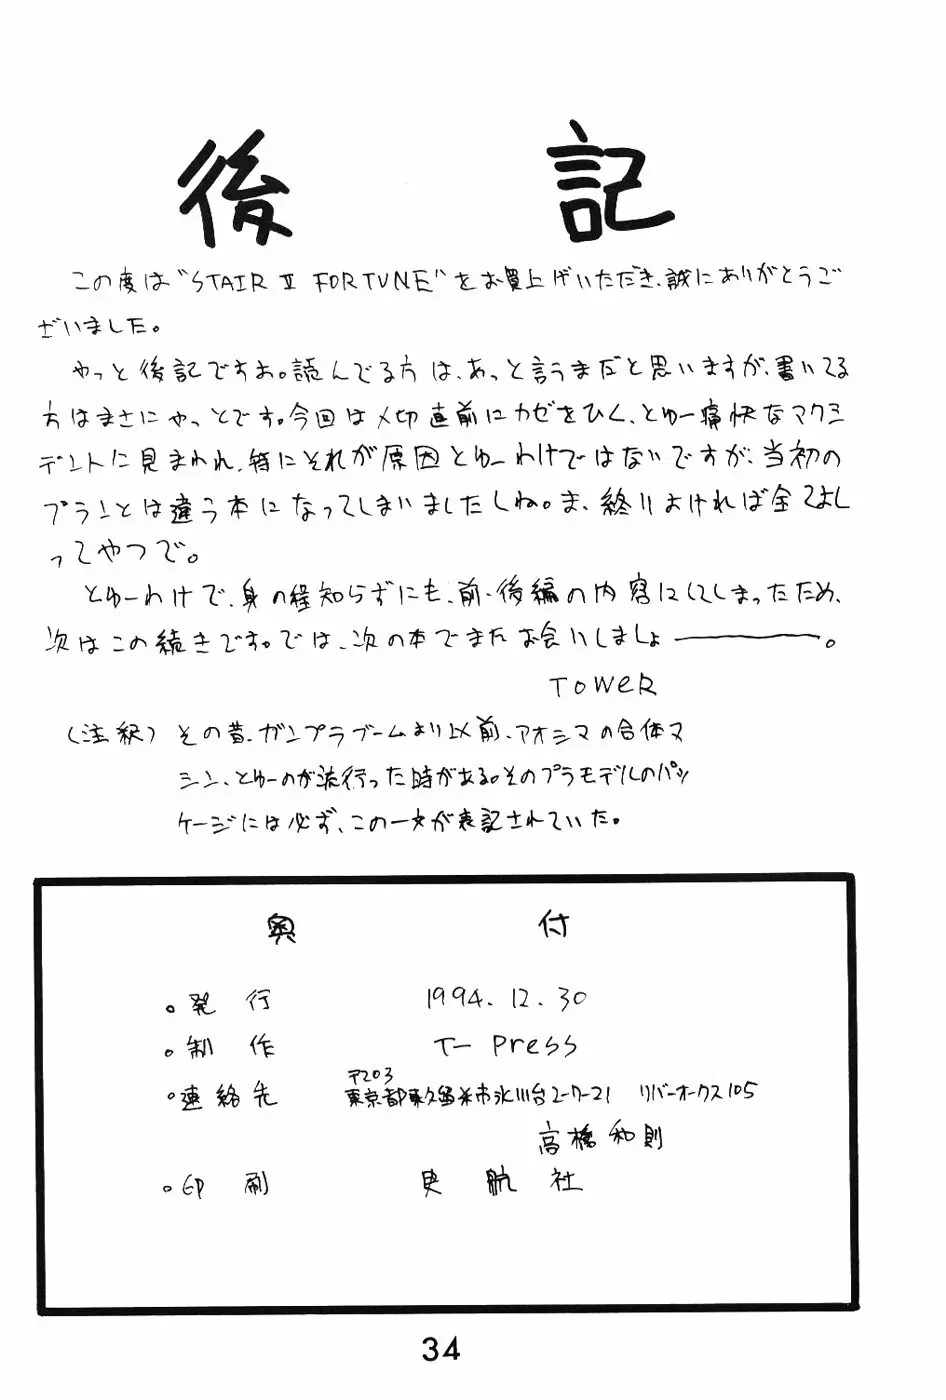 後記
この度は"STAIR Ⅱ FORTUNE"をお買上げいただき、誠にありがとうご
ざいました。
やっと後記ですよ。読んでる方は、あっと言うまだと思いますが、書いてる
方はまさにやっとです。今回は〆切直前にカゼをひく、とゆー痛快なアクシ
デントに見まわれ、特にそれが原因とゆーわけではないですが、当初の
プランとは違う本になってしまいましたしね。ま、終りよければ全てよし
ってやつで。
とゆーわけで、身の程知らずにも、前・後編の内容にしてしまったため、
次はこの続きです。では、次の本でまたお会いしましょ―――。
TOWER
(注釈) その昔、ガンプラブームより以前、アオシマの合体マ
シン、とゆーのが流行った時がある。そのプラモデルのパッ
ケージには必ず、この一文が表記されていた。
奥付
。発行 1994.12.30
。制作 T-Press
〒203
。連絡先 東京都東久留米市氷川台2-7-21 リバーオークス105
高橋和則
。印刷 航社
34